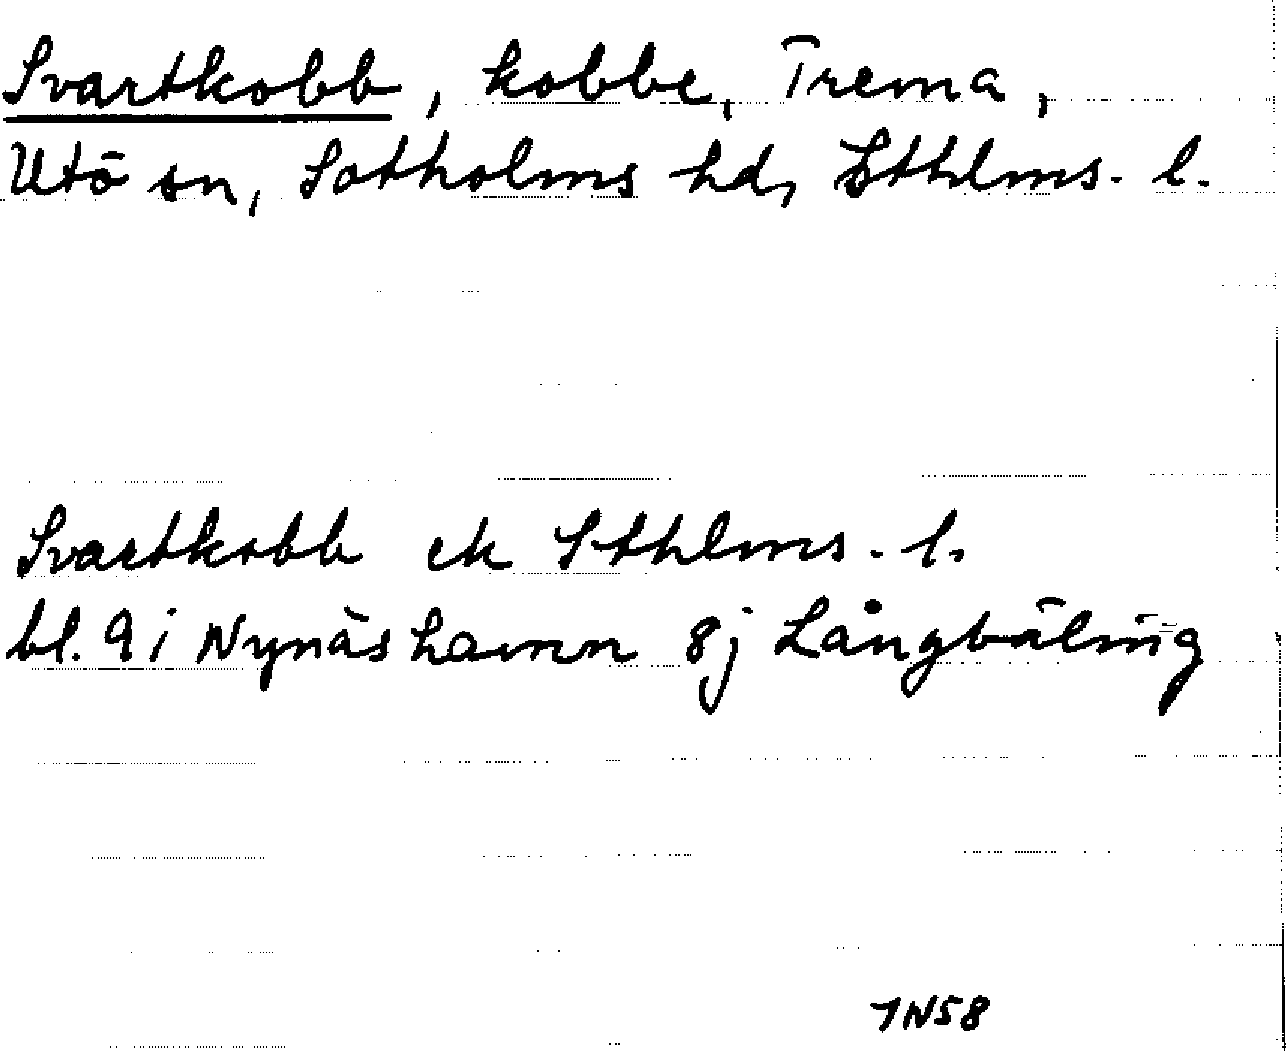 Svartkobb, kobbe, Trema,
Utö sn, Sotholms hd, Sthlms. l.
Svartkobb ek Sthlms. l.
bl. 9 i Nynäshamn 8j Långbäling
1N58